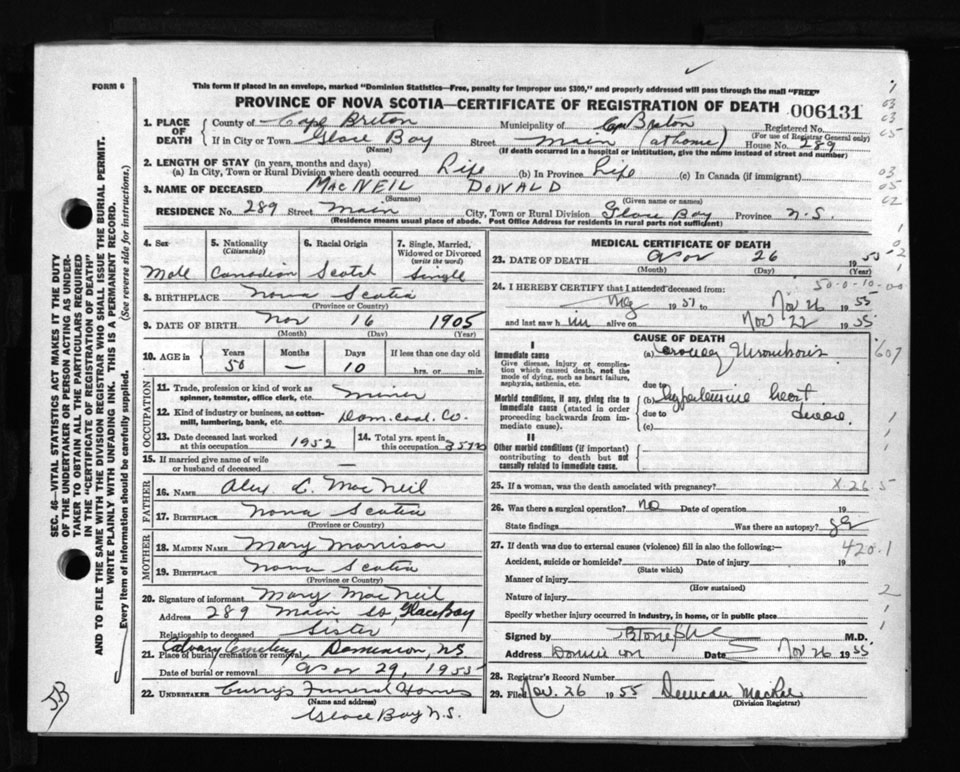 FORM 6
This form if placed in an envelope, marked "Dominion Statistics—Free, penalty for improper use $300," and properly addressed will pass through the mail "FREE"
PROVINCE OF NOVA SCOTIA—CERTIFICATE OF REGISTRATION OF DEATH 006131
1. PLACE OF DEATH
County of Cape Breton Municipality of Cape Breton Registered No.
(Name) (For use of Registrar General only)
If in City or Town Glace Bay Street Main (at home) House No. 289
(If death occurred in a hospital or institution, give the name instead of street and number)
2. LENGTH OF STAY (in years, months and days)
(a) In City, Town or Rural Division where death occurred Life (b) In Province Life (c) In Canada (if immigrant)
3. NAME OF DECEASED MACNEIL DONALD
(Surname) (Given name or names)
RESIDENCE No. 289 Street Main City, Town or Rural Division Glace Bay Province N.S.
(Residence means usual place of abode. Post Office Address for residents in rural parts not sufficient)
4. Sex
Male
5. Nationality (Citizenship)
Canadian
6. Racial Origin
Scotch
7. Single, Married, Widowed or Divorced (write the word)
Single
8. BIRTHPLACE Nova Scotia
(Province or Country)
9. DATE OF BIRTH Nov 16 1905
(Month) (Day) (Year)
10. AGE in Years Months Days If less than one day old
50 — 10 hrs. or min.
OCCUPATION
11. Trade, profession or kind of work as spinner, teamster, office clerk, etc. Miner
12. Kind of industry or business, as cotton-mill, lumbering, bank, etc. Dom. Coal Co.
13. Date deceased last worked at this occupation 1952
14. Total yrs. spent in this occupation 35
15. If married give name of wife or husband of deceased —
FATHER
16. NAME Alex MacNeil
17. BIRTHPLACE Nova Scotia
(Province or Country)
MOTHER
18. MAIDEN NAME Mary Morrison
19. BIRTHPLACE Nova Scotia
(Province or Country)
20. Signature of informant Mary MacNeil
Address 289 Main St, Glace Bay
Relationship to deceased Sister
Calvary Cemetery Dominion, NS
21. Place of burial, cremation or removal
Date of burial or removal Nov 29, 1955
22. UNDERTAKER Curry's Funeral Homes
(Name and address)
Glace Bay N.S.
MEDICAL CERTIFICATE OF DEATH
23. DATE OF DEATH Nov 26 1955
(Month) (Day) (Year)
50-0-10-00
24. I HEREBY CERTIFY that I attended deceased from:
1951 to Nov 26 1955
and last saw him alive on Nov 22 1955
CAUSE OF DEATH
I
Immediate cause
Give disease, injury or complication which caused death, not the mode of dying, such as heart failure, asphyxia, asthenia, etc.
(a) Coronary Thrombosis
due to
Morbid conditions, if any, giving rise to immediate cause (stated in order proceeding backwards from immediate cause).
(b) Hypertensive heart
due to disease
(c)
II
Other morbid conditions (if important) contributing to death but not causally related to immediate cause.
25. If a woman, was the death associated with pregnancy? X-26.5
26. Was there a surgical operation? no Date of operation 19
State findings Was there an autopsy?
27. If death was due to external causes (violence) fill in also the following:— 420.1
Accident, suicide or homicide? Date of injury 19
(State which)
Manner of injury
(How sustained)
Nature of injury
Specify whether injury occurred in industry, in home, or in public place
Signed by M.D.
Address Dominion Date Nov 26 1955
28. Registrar's Record Number
29. Filed Nov. 26 1955 Duncan MacRae
(Division Registrar)
SEC. 46—VITAL STATISTICS ACT MAKES IT THE DUTY
OF THE UNDERTAKER OR PERSON ACTING AS UNDER-
TAKER TO OBTAIN ALL THE PARTICULARS REQUIRED
IN THE "CERTIFICATE OF REGISTRATION OF DEATH"
AND TO FILE THE SAME WITH THE DIVISION REGISTRAR WHO SHALL ISSUE THE BURIAL PERMIT.
WRITE PLAINLY WITH UNFADING INK. THIS IS A PERMANENT RECORD.
Every item of information should be carefully supplied. (See reverse side for instructions.)